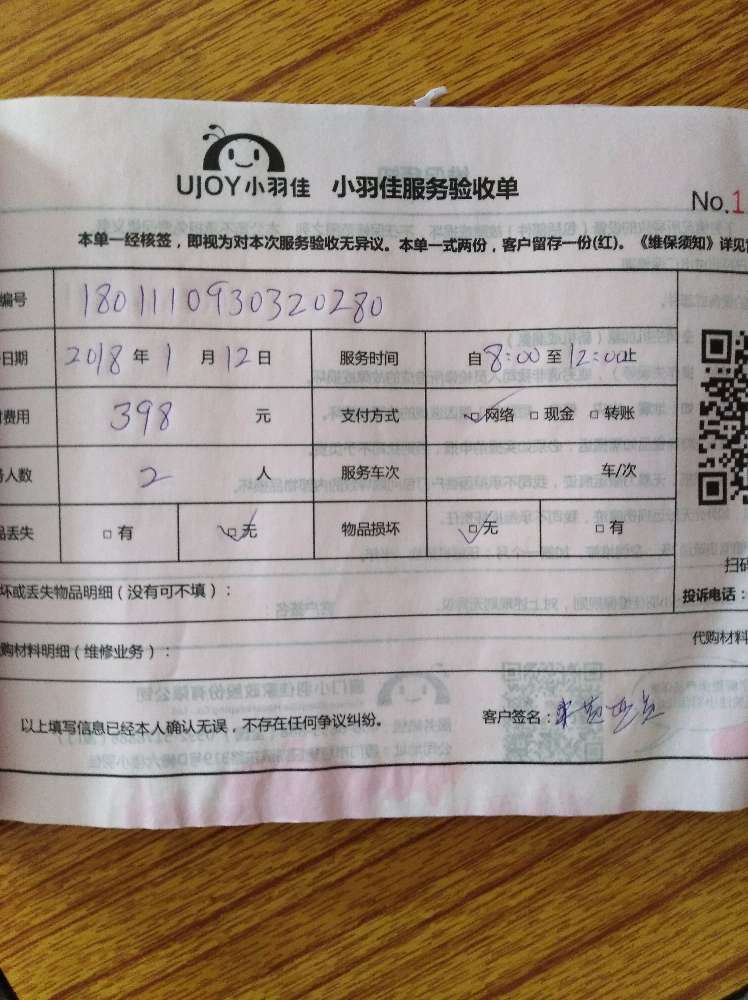 UJOY小羽佳 小羽佳服务验收单
No.1
本单一经核签，即视为对本次服务验收无异议。本单一式两份，客户留存一份(红)。《维保须知》详见
编号 1801110930320280
日期 2018年1月12日 服务时间 自8:00至12:00止
费用 398 元 支付方式 网络 现金 转账
人数 2 人 服务车次 车/次
丢失 有 无 物品损坏 无 有
坏或丢失物品明细（没有可不填）：
扫码
投诉电话：
购材料明细（维修业务）：
代购材料
以上填写信息已经本人确认无误，不存在任何争议纠纷。 客户签名：